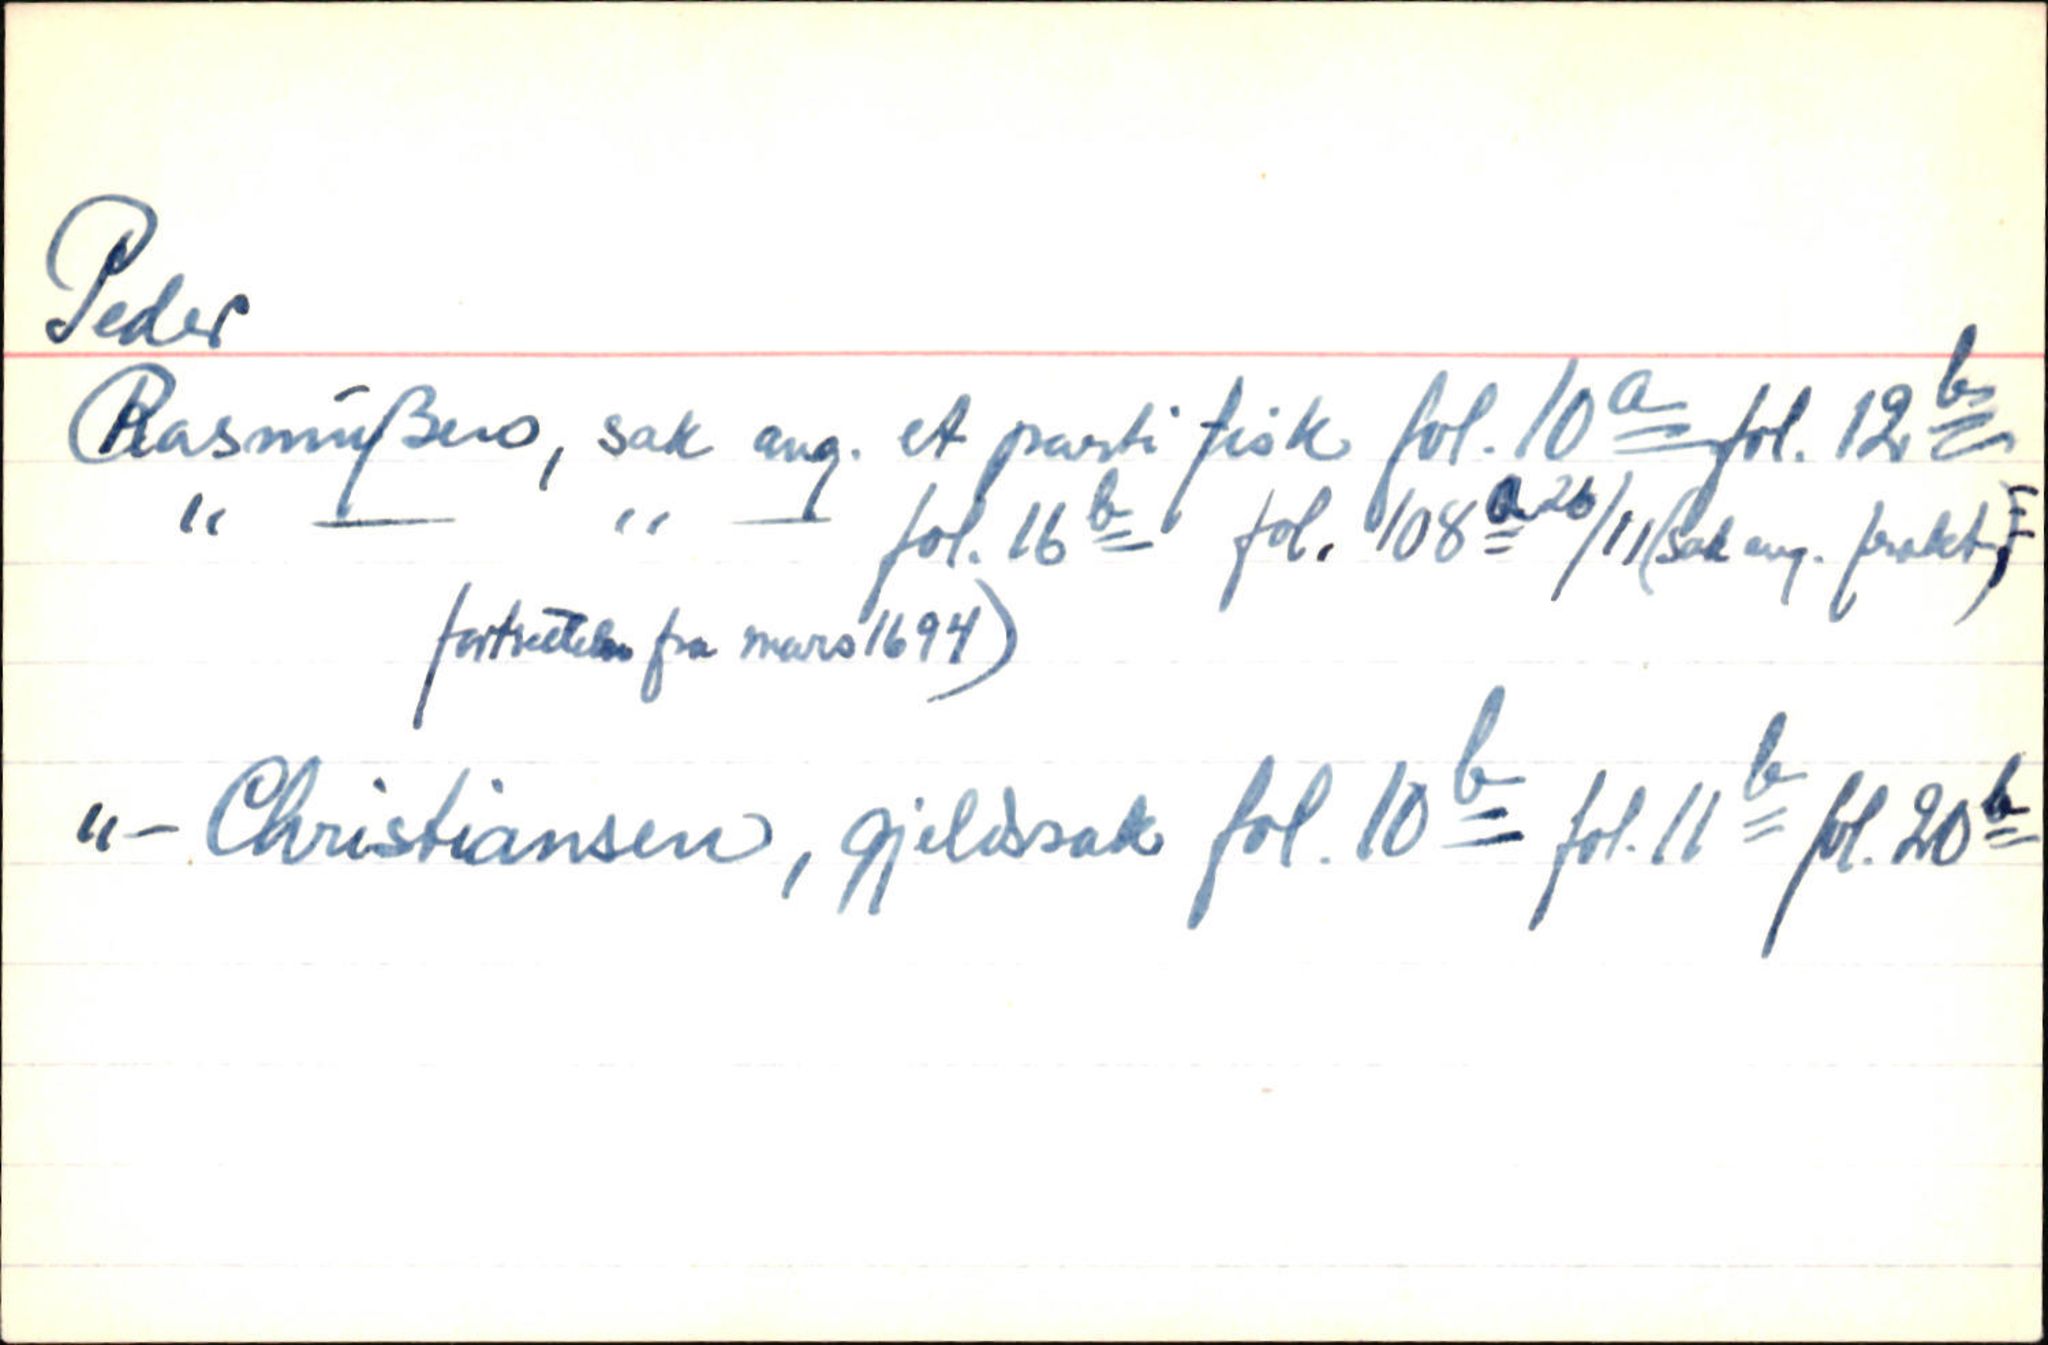 Peder
Rasmußen, sak ang. et parti fisk fol. 10 a fol. 12 b
" — " — fol. 16 b fol. 108 a 26/11 (sak ang. frakt,)
fortsettelse fra mars 1694)
" – Christiansen, gjeldssak fol. 10 b fol. 11 b fol. 20 b